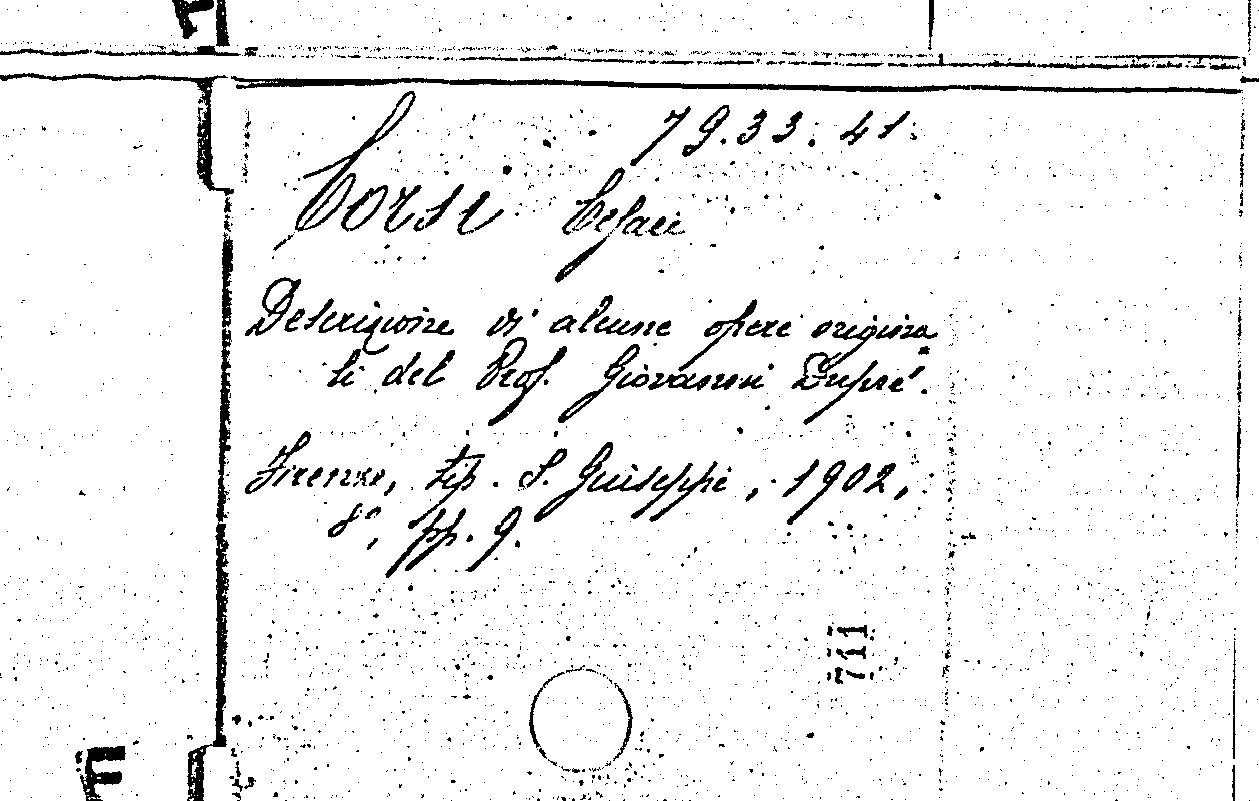 79.33.41.
Corsi Cesare
Descrizione di alcune opere origina
li del Prof. Giovanni Dupré.
Firenze, tip. S. Giuseppe, 1902,
8°, pp. 9.
711
E